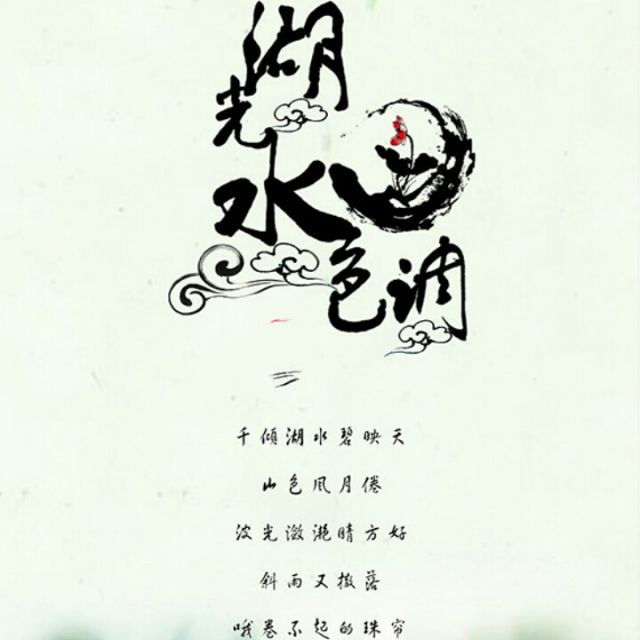 湖光水色调
千倾湖水碧映天
山色风月倦
波光潋滟晴方好
斜雨又撒落
哦卷不起的珠帘